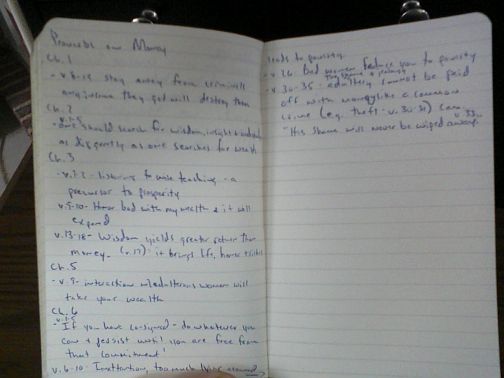 Proverbs on Money
Ch. 1
- v. 8-19 stay away from criminals
any income they get will destroy them
Ch. 2
v. 1-5
- one should search for wisdom, insight &
as diligently as one searches for wealth
Ch. 3
- v. 1-2 - listening to wise teaching - a
precursor to prosperity
v. 9-10 - Honor God with my wealth & it will
expand
v. 13-18 - Wisdom yields greater return than
money. (v. 17) - it brings life, honor
Ch. 5
- v. 9 - interaction w/ adulterous women will
take your wealth
Ch. 6
v. 1-5
- If you have co-signed - do whatever you
can & persist until you are free from
that commitment!
v. 6-10 - Inattention, too much lying around
leads to poverty
- v. 26 Bad women reduce you to poverty
- v. 30-35 - adultery cannot be paid
off with money like a common
crime (e.g. theft - v. 30-31) can.
"His shame will never be wiped away. v. 33